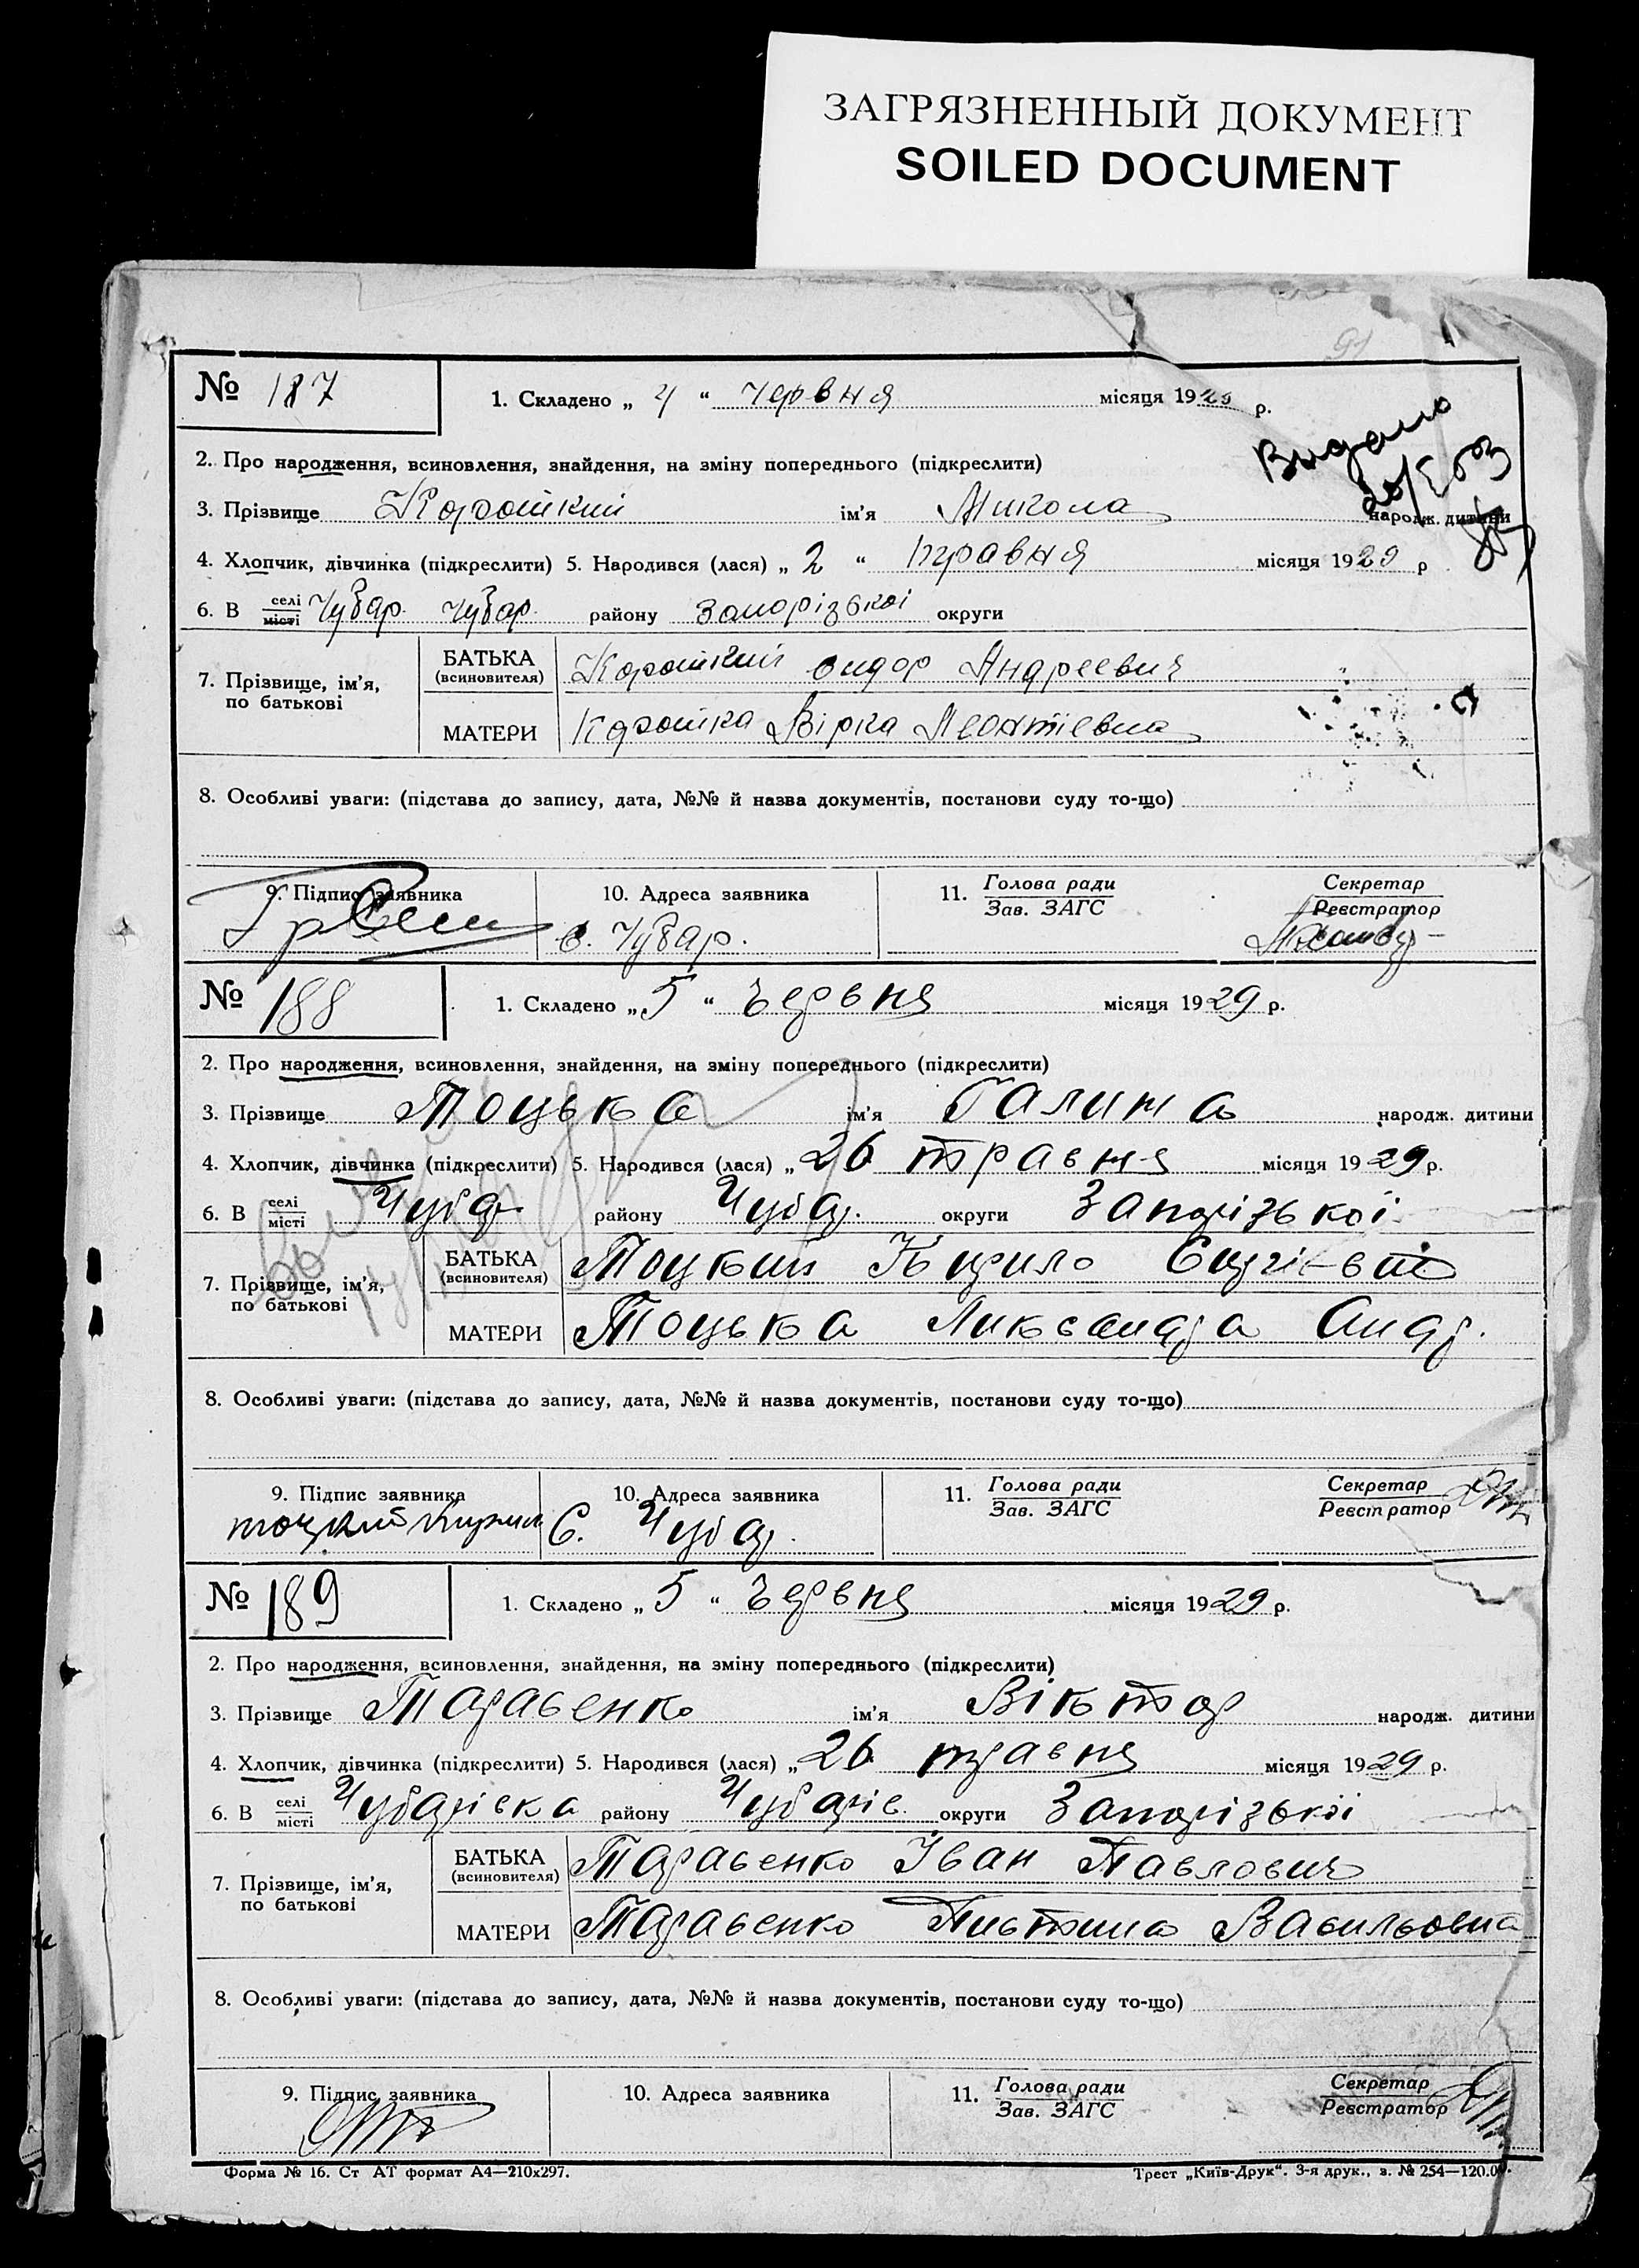 ЗАГРЯЗНЕННЫЙ ДОКУМЕНТ
SOILED DOCUMENT
91
№ 187 1. Складено „ 4 “ червня місяця 1929 р.
Видано
2. Про народження, всиновлення, знайдення, на зміну попереднього (підкреслити)
3. Прізвище Короткий ім'я Микола народж. дитини
4. Хлопчик, дівчинка (підкреслити) 5. Народився (лася) „ 2 “ травня місяця 1929 р
6. В селі/місті Чубар. Чубар. району Запорізької округи
7. Прізвище, ім'я, по батькові
БАТЬКА (всиновителя) Короткий Сидор Андреевич
МАТЕРИ Коротка Вірка Леонтіевна
8. Особливі уваги: (підстава до запису, дата, №№ й назва документів, постанови суду то-що)
9. Підпис заявника 10. Адреса заявника 11. Голова ради/Зав. ЗАГС Секретар/Реєстратор
с. Чубар.
№ 188 1. Складено „ 5 “ червня місяця 1929 р.
2. Про народження, всиновлення, знайдення, на зміну попереднього (підкреслити)
3. Прізвище Тоцька ім'я Галина народж. дитини
4. Хлопчик, дівчинка (підкреслити) 5. Народився (лася) „ 26 травня місяця 1929 р.
6. В селі/місті Чубар району Чубар. округи Запорізької
7. Прізвище, ім'я, по батькові
БАТЬКА (всиновителя) Тоцький Кирило Сергієвич
МАТЕРИ Тоцька Ликсандра Андр.
8. Особливі уваги: (підстава до запису, дата, №№ й назва документів, постанови суду то-що)
9. Підпис заявника 10. Адреса заявника 11. Голова ради/Зав. ЗАГС Секретар/Реєстратор
тоцкий Кирил С. Чубар.
№ 189 1. Складено „ 5 “ червня місяця 1929 р.
2. Про народження, всиновлення, знайдення, на зміну попереднього (підкреслити)
3. Прізвище Таравенко ім'я Віктор народж. дитини
4. Хлопчик, дівчинка (підкреслити) 5. Народився (лася) „ 26 травня місяця 1929 р.
6. В селі/місті Чубарівка району Чубарів. округи Запорізької
7. Прізвище, ім'я, по батькові
БАТЬКА (всиновителя) Таравенко Іван Павлович
МАТЕРИ Таравенко Пистина Васильовна
8. Особливі уваги: (підстава до запису, дата, №№ й назва документів, постанови суду то-що)
9. Підпис заявника 10. Адреса заявника 11. Голова ради/Зав. ЗАГС Секретар/Реєстратор
Форма № 16. Ст АТ формат А4—210х297. Трест „Київ-Друк“. 3-я друк., з. № 254—120.0